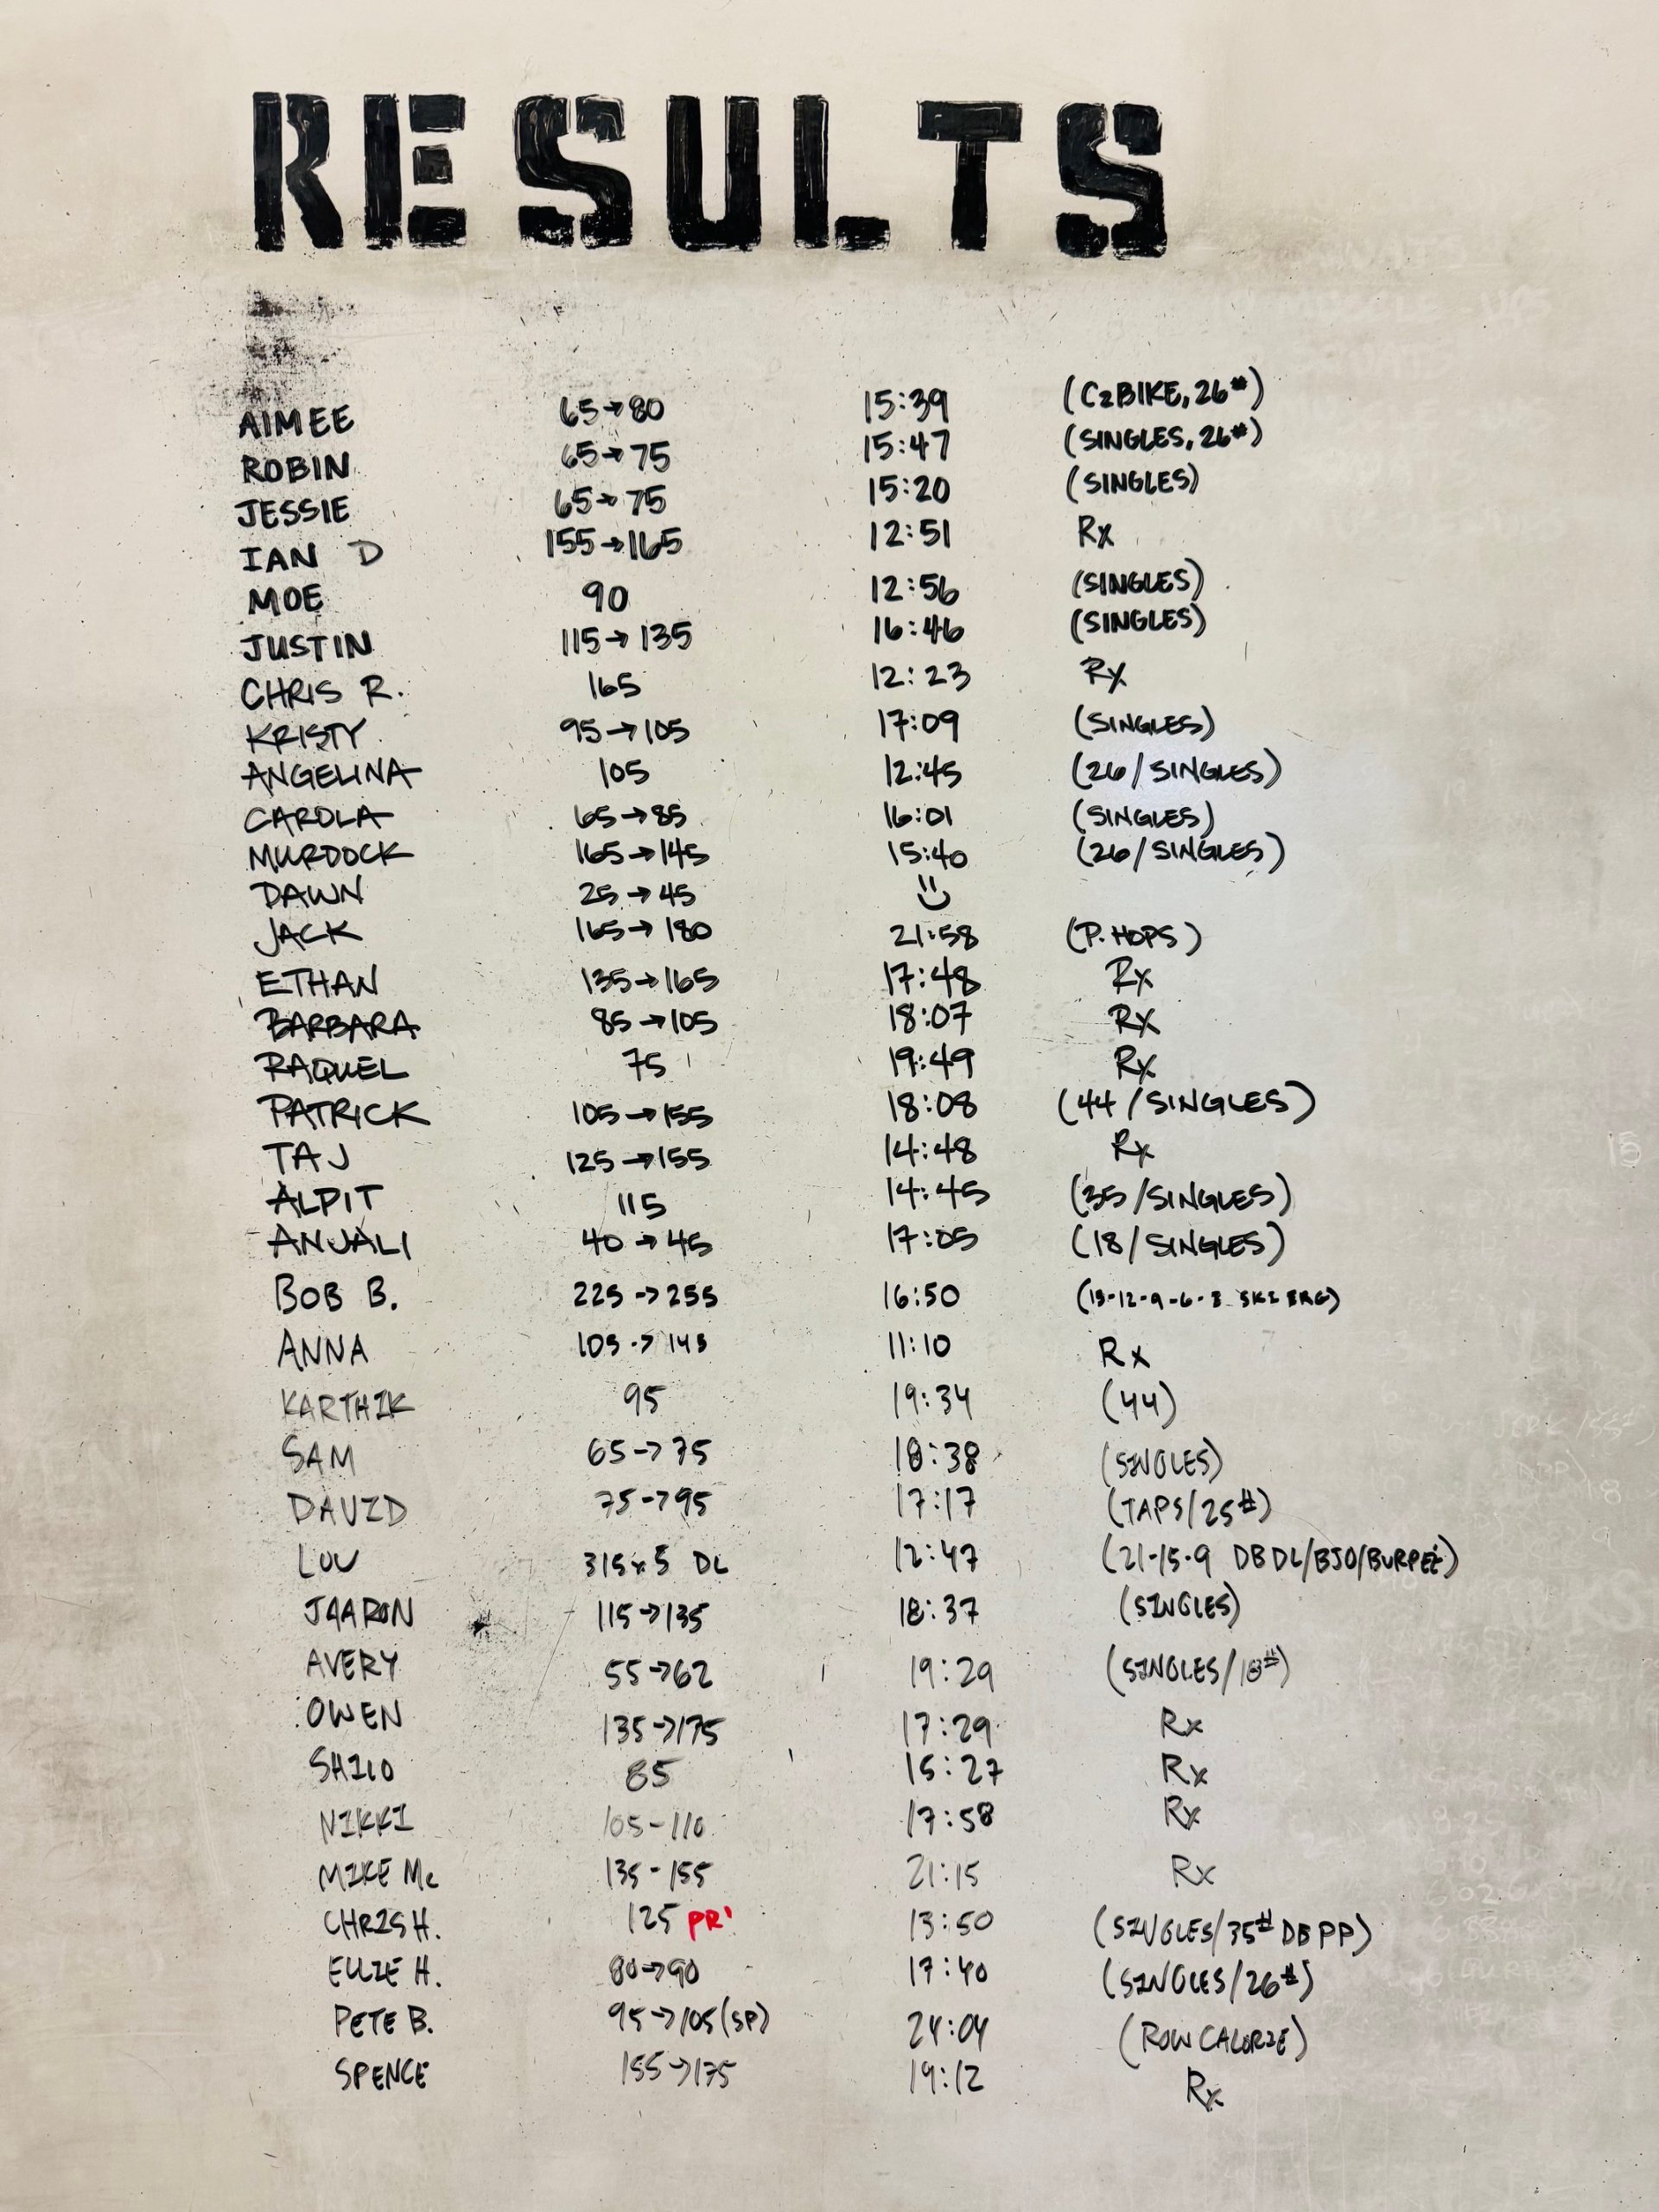 RESULTS
AIMEE 65→80 15:39 (C2BIKE, 26#)
ROBIN 65→75 15:47 (SINGLES, 26#)
JESSIE 65→75 15:20 (SINGLES)
IAN D 155→165 12:51 Rx
MOE 90 12:56 (SINGLES)
JUSTIN 115→135 16:46 (SINGLES)
CHRIS R. 165 12:23 Rx
KRISTY 95→105 17:09 (SINGLES)
ANGELINA 105 12:45 (26/SINGLES)
CAROLA 65→85 16:01 (SINGLES)
MURDOCK 165→145 15:40 (26/SINGLES)
DAWN 25→45
JACK 165→180 21:58 (P. HOPS)
ETHAN 135→165 17:48 Rx
BARBARA 85→105 18:07 Rx
RAQUEL 75 19:49 Rx
PATRICK 105→155 18:08 (44/SINGLES)
TAJ 125→155 14:48 Rx
ALPIT 115 14:45 (35/SINGLES)
ANJALI 40→45 17:05 (18/SINGLES)
BOB B. 225→255 16:50 (15-12-9-6-3 SKI ERG)
ANNA 105→145 11:10 Rx
KARTHIK 95 19:34 (44)
SAM 65→75 18:38 (SINGLES)
DAVID 75→95 17:17 (TAPS/25#)
LOU 315x5 DL 12:47 (21-15-9 DB DL/BJO/BURPEE)
JAARON 115→135 18:37 (SINGLES)
AVERY 55→62 19:29 (SINGLES/18#)
OWEN 135→175 17:29 Rx
SHILO 85 15:27 Rx
NIKKI 105-110 17:58 Rx
MIKE Mc 135-155 21:15 Rx
CHRIS H. 125 PR! 13:50 (SINGLES/35# DB PP)
ELLIE H. 80→90 17:40 (SINGLES/26#)
PETE B. 95→105(SP) 24:04 (ROW CALORIE)
SPENCE 155→175 19:12 Rx